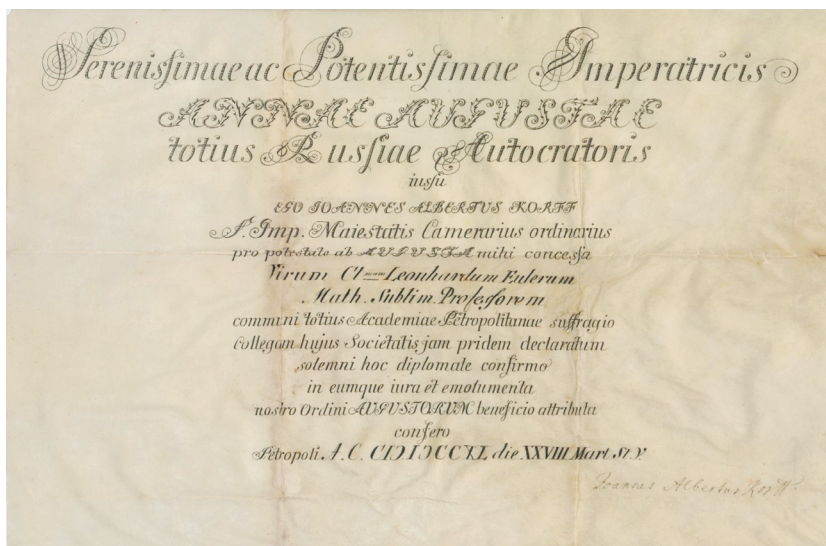 Serenissimae ac Potentissimae Imperatricis
ANNAE AUGUSTAE
totius Russiae Autocratoris
iussu
EGO IOANNES ALBERTVS KORFF
S. Imp. Maiestatis Camerarius ordinarius
pro potestate ab AUGUSTA mihi concessa
Virum Cl mum Leonhardum Eulerum
Math. Sublim. Professorem
communi totius Academiae Petropolitanae suffragio
Collegam hujus Societatis jam pridem declaratum
solemni hoc diplomate confirmo
in eumque iura et emolumenta
nostro Ordini AUGUSTORUM beneficio attributa
confero
Petropoli. A. C. CIƆIƆCCXL die XXVIII Mart St. V.
Joannes Albertus Korff